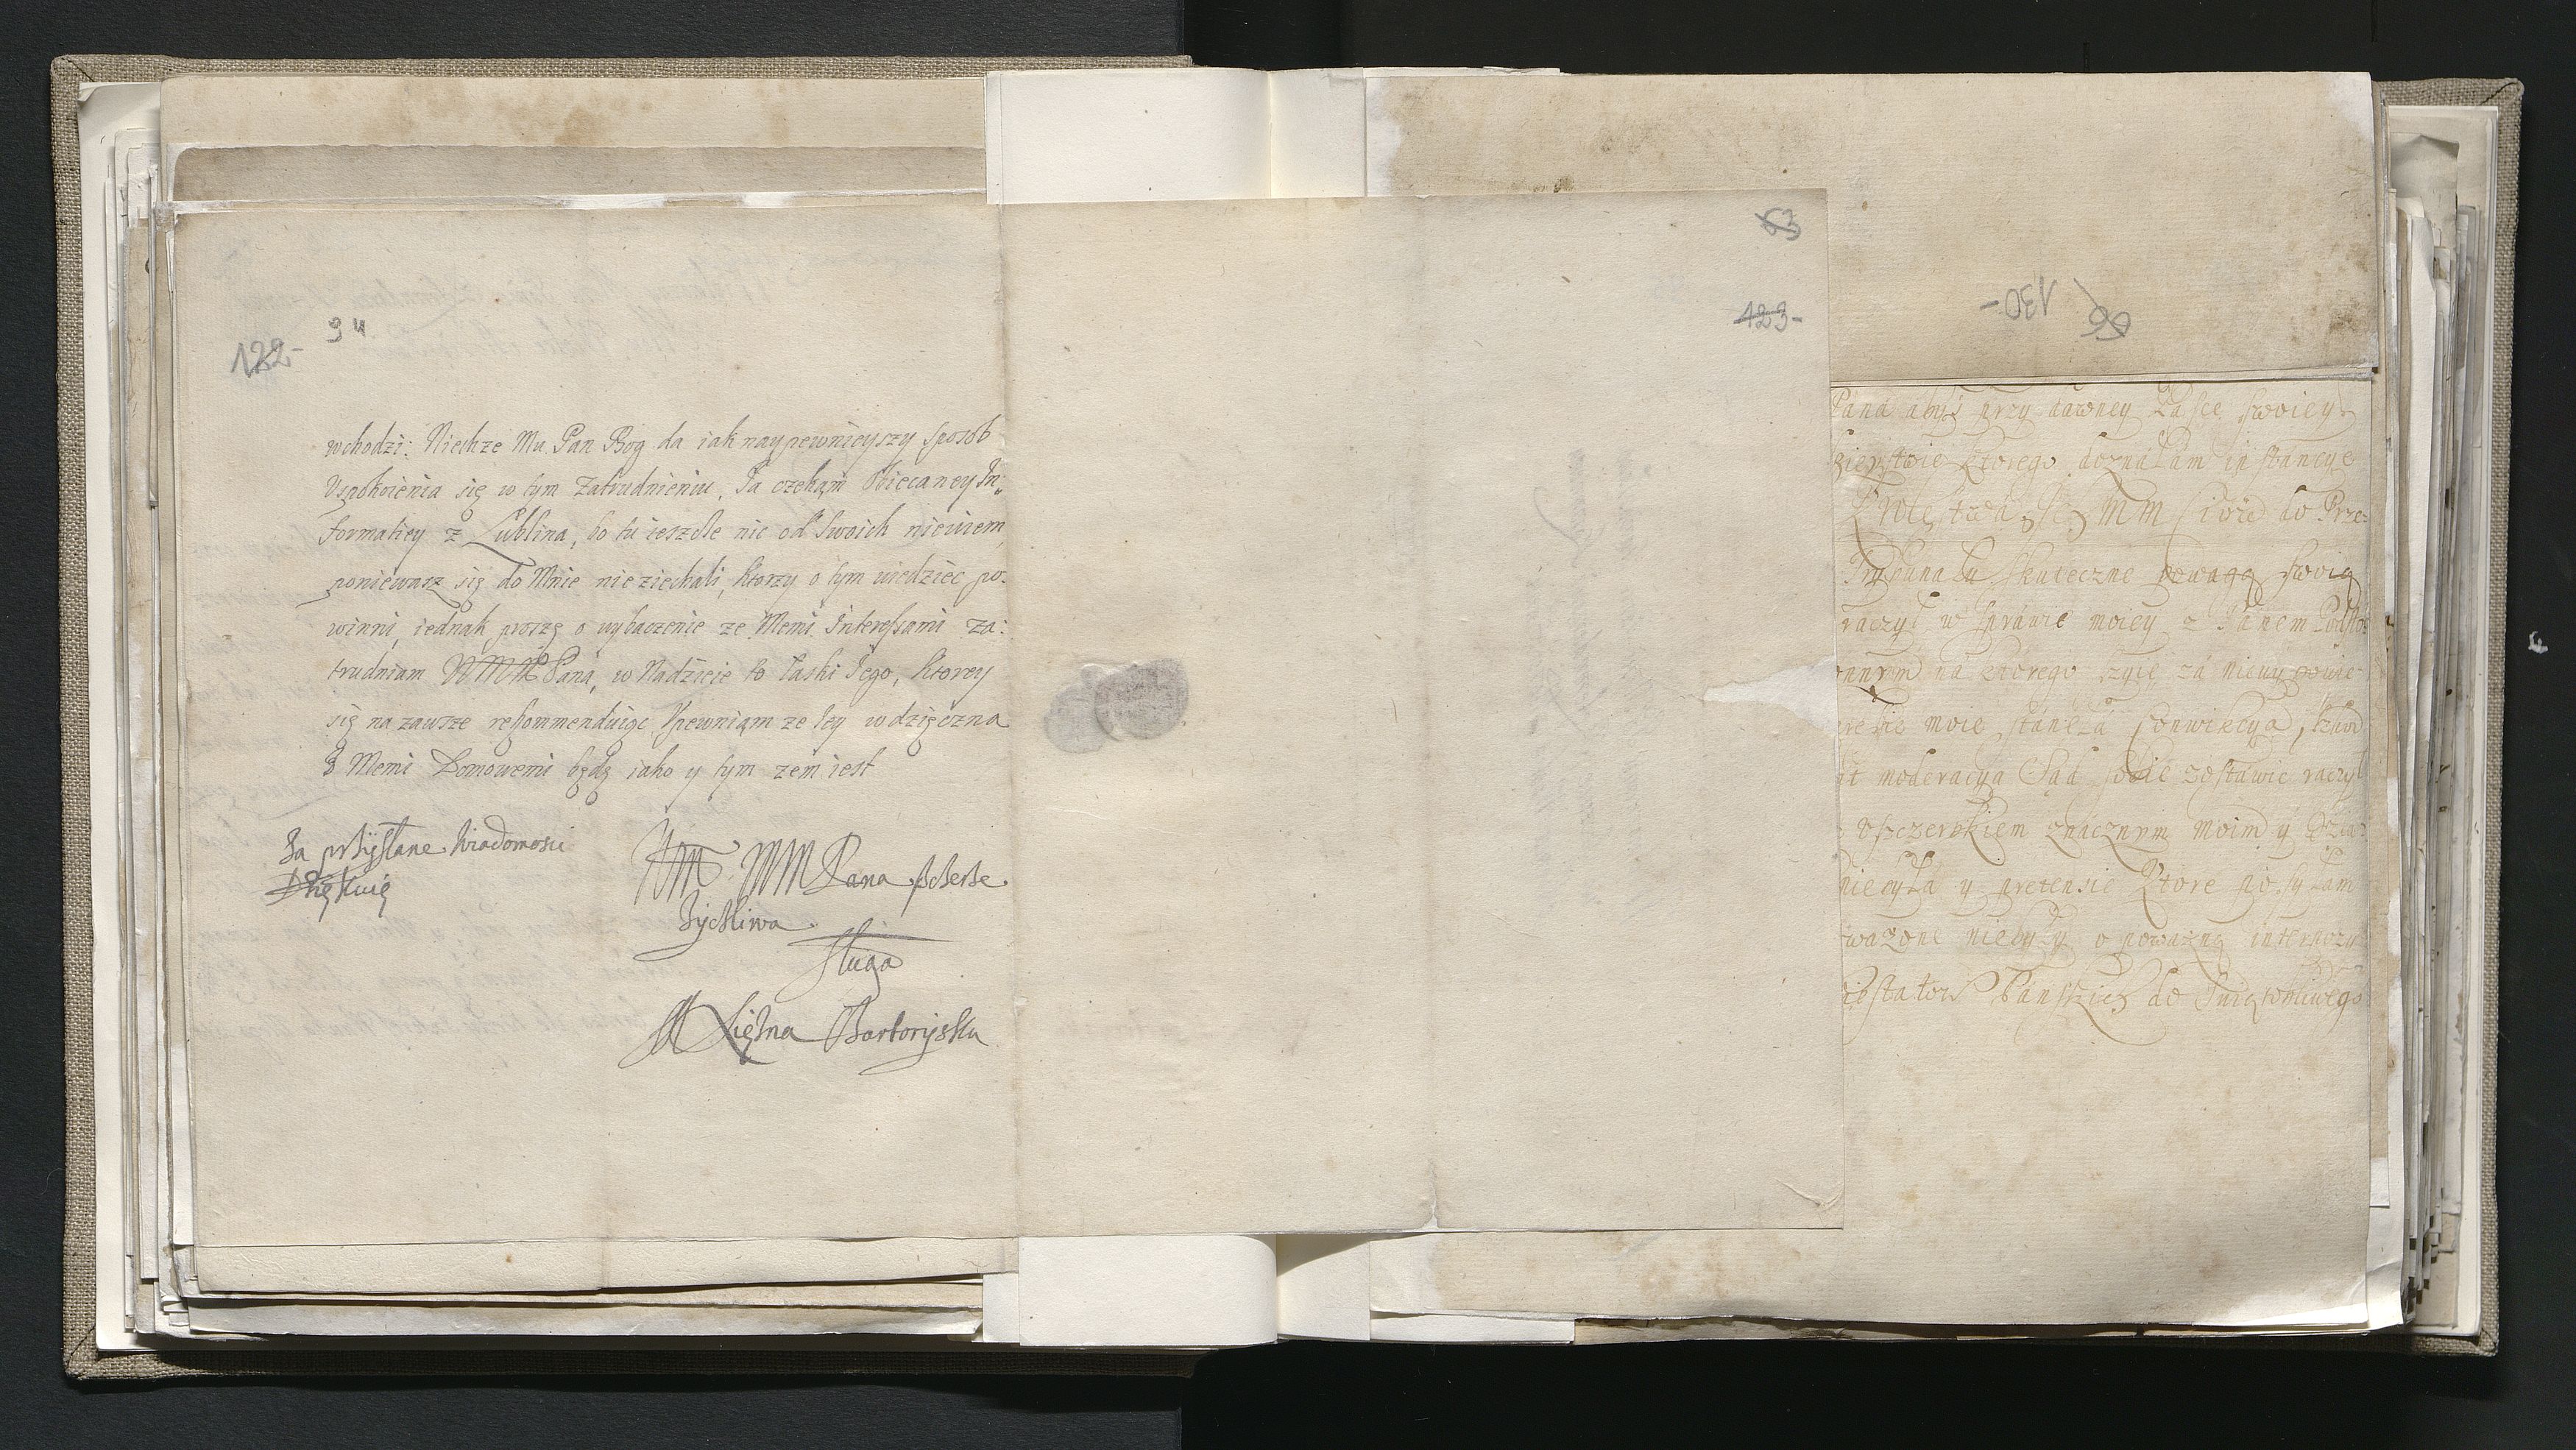 122-
94
wchodzi: Niechze Mu Pan Bog da iak naypewnieyszy sposob
Vspokoienia się w tym Zatrudnieniu, Ja czekąm Obiecaney In„
formatiey z Lublina, bo tu ieszcze nic od swoich niewiem,
poniewasz się do Mnie nieziechali, ktorzy o tym wiedziec po-
winni, iednak proszę o wybaczenie ze Memi Interessami za:
trudniam WMM Pana, w Nadzieie to łaski Jego, ktorey
się na zawsze rekommenduigc Vpewniąm ze Jey wdzięczna
Z Memi Domowemi będę iako y tym zem iest
Za przysłane Wiadomosci
Dziękuię
WM MM Pana szczerze
Zyczliwa
sługa
M Xiężna Czartoryska
63
123-
130-
66
Pana abyś przy dawney Łasce swoiey
ktorego doznałam instancye
MM do Prze-
Trybunału skuteczne powagą swoią
raczył w sprawie moiey z Panem
na ktorego życie za niewypowie-
moie staneła Conwikcya,
moderacya Sąd sobie zostawic raczył
Vszczerbkiem znacznym moim y
y pretensie Ktore posyłam
niebyły o poważną
Pańskich do